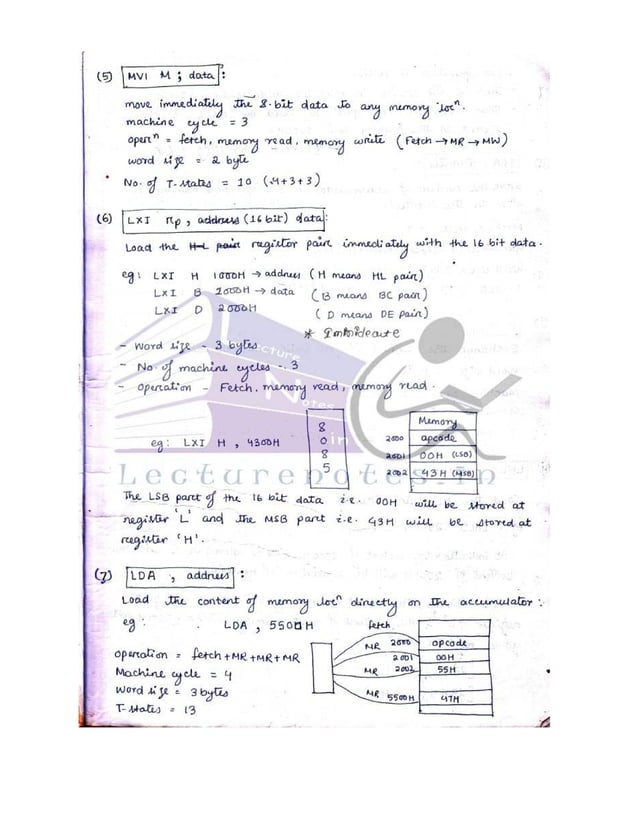 (5) MVI M ; data :
move immediately the 8-bit data to any memory locⁿ.
machine cycle = 3
operⁿ = fetch, memory read, memory write (Fetch → MR → MW)
word size = 2 byte
No. of T-states = 10 (4+3+3)
(6) LXI rp, address (16 bit) data :
Load the register pair immediately with the 16 bit data.
eg: LXI H 1000H → address (H means HL pair)
LXI B 2000H → data (B means BC pair)
LXI D 2000H (D means DE pair)
- Word size - 3 bytes
- No. of machine cycles - 3
- Operation - Fetch, memory read, memory read.
Lecture Notes in
eg: LXI H, 4300H
8
0
8
5
Memory
2000 opcode
2001 00H (LSB)
2002 43H (MSB)
Lecturenotes.in
The LSB part of the 16 bit data i.e. 00H will be stored at
register 'L' and the MSB part i.e. 43H will be stored at
register 'H'.
(7) LDA , address :
Load the content of memory locⁿ directly on the accumulator:
eg : LDA, 5500H
operation = fetch+MR+MR+MR
Machine cycle = 4
Word size = 3 bytes
T-states = 13
fetch
MR 2000 opcode
2001 00H
MR 2002 55H
MR 5500H 47H